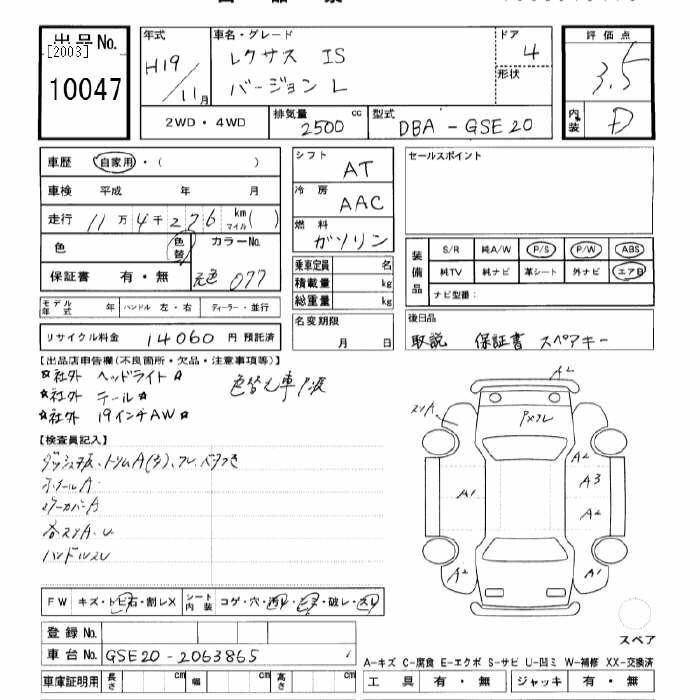 出品No.
[2003]
10047
年式
H19/11月
車名・グレード
レクサス IS
バージョン L
ドア
4
形状
評価点
3.5
内装
D
2WD・4WD
排気量 2500 cc
型式 DBA-GSE20
車歴 自家用・( )
車検 平成 年 月
走行 11万4千276 km マイル ( )
色 色替 カラーNo.
保証書 有・無 元色 077
モデル年式 年 ハンドル 左・右 ディーラー・並行
リサイクル料金 14060 円 預託済
シフト AT
冷房 AAC
燃料 ガソリン
乗車定員 名
積載量 kg
総重量 kg
名変期限
月 日
セールスポイント
装備品
S/R 純A/W P/S P/W ABS
純TV 純ナビ 革シート 外ナビ エアB
ナビ型番:
後日品
取説 保証書 スペアキー
【出品店申告欄(不良箇所・欠品・注意事項等)】
☆社外 ヘッドライト☆
☆社外 テール☆
☆社外 19インチAW☆
色替え車
【検査員記入】
ホイールA
ハンドルスレ
FW キズ・トビ石・割レX シート内装 コゲ・穴・汚レ・ヒビ・破レ・スレ
登録No.
車台No. GSE20-2063865
車庫証明用 長さ cm 幅 cm 高さ cm
A2
A1
A2
A3
A2
A2
A1
スペア
A-キズ C-腐食 E-エクボ S-サビ U-凹ミ W-補修 XX-交換済
工具 有・無 ジャッキ 有・無